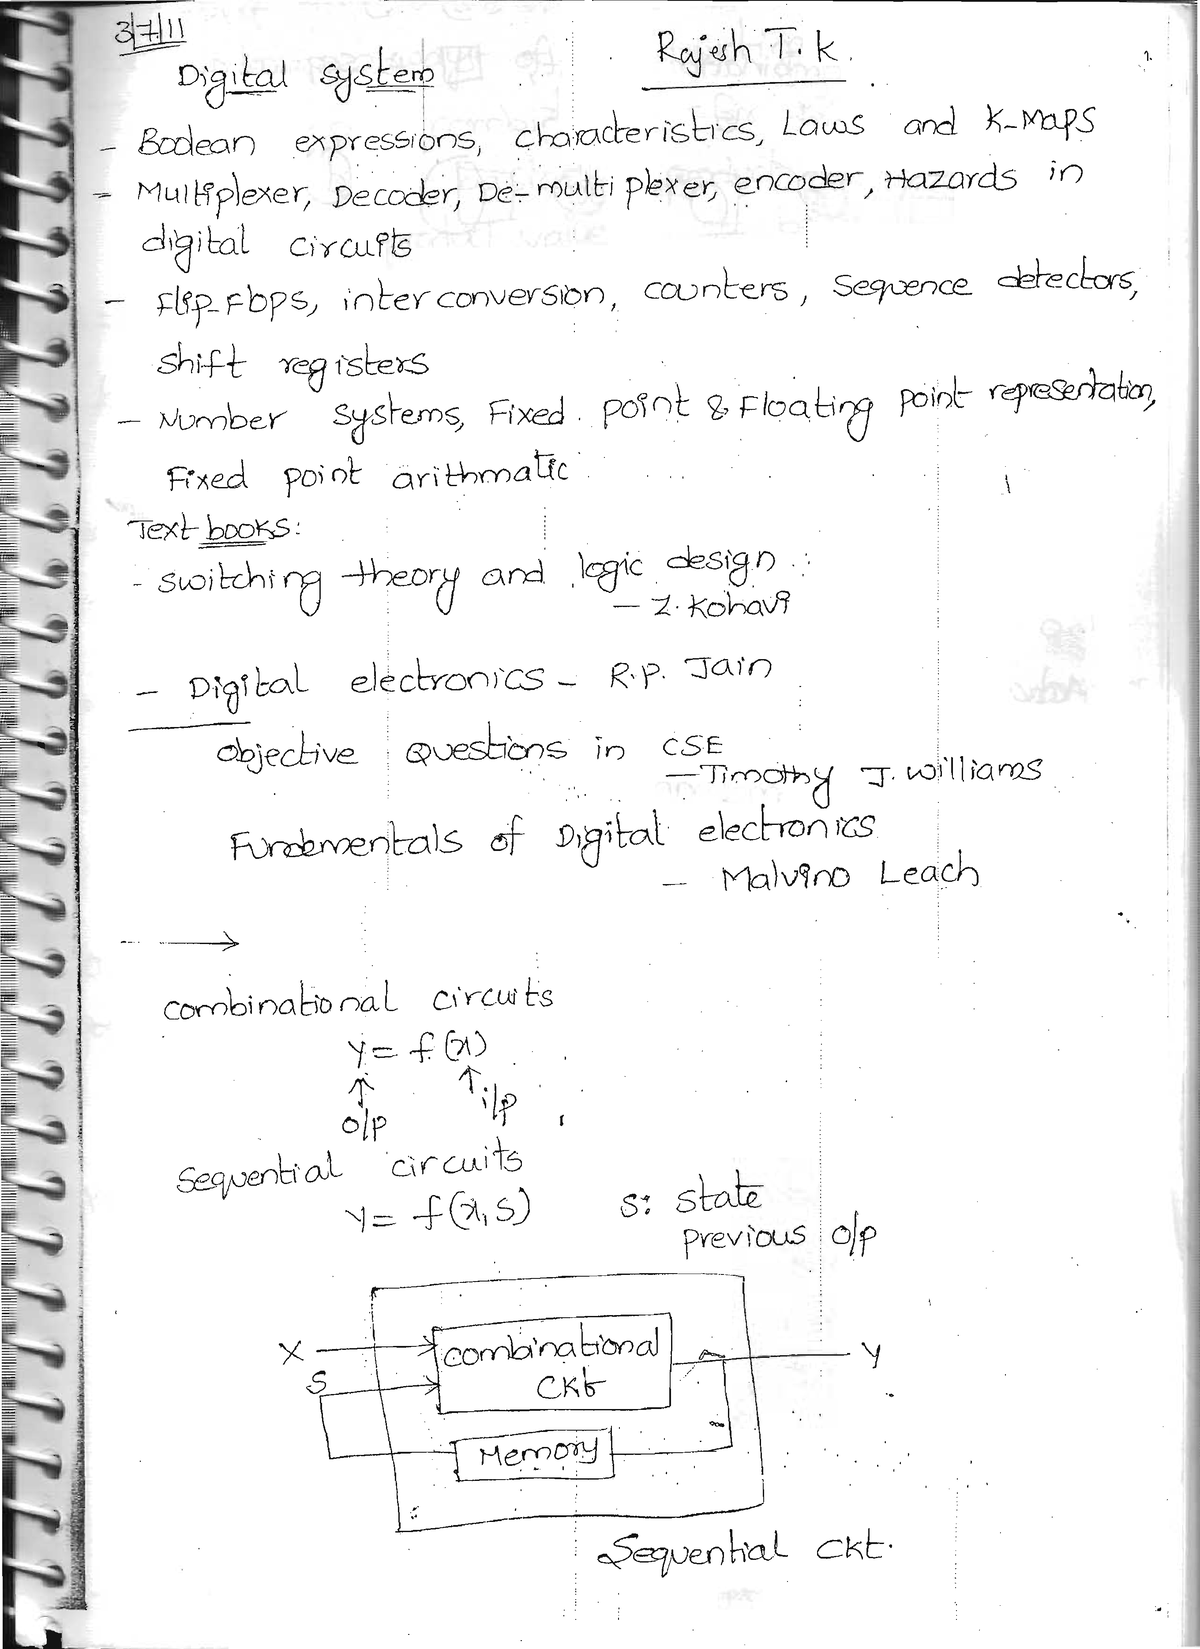 3/7/11
Rajesh T.K.
1.
Digital system
- Boolean expressions, characteristics, Laws and K-Maps
- Multiplexer, Decoder, De-multiplexer, encoder, Hazards in
digital circuits
- Flip-Flops, inter conversion, counters, Sequence detectors,
shift registers
- Number systems, Fixed point & Floating point representation,
Fixed point arithmatic
Text books:
- switching theory and logic design
- Z. Kohavi
- Digital electronics - R.P. Jain
objective Questions in CSE
- Timothy J. Williams
Fundementals of Digital electronics
- Malvino Leach
combinational circuits
y = f(x)
o/p i/p
Sequential circuits
y = f(x, s) s: state
previous o/p
X
combinational
ckt
y
S
Memory
Sequential ckt.